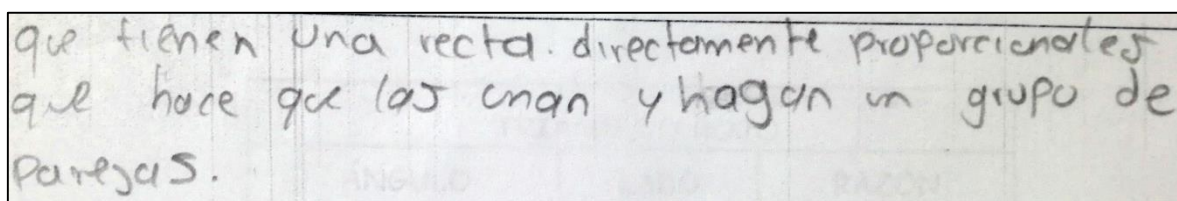 que tienen una recta. directamente proporcionales
que hace que las unan y hagan un grupo de
parejas.
ÁNGULO LADO RAZÓN